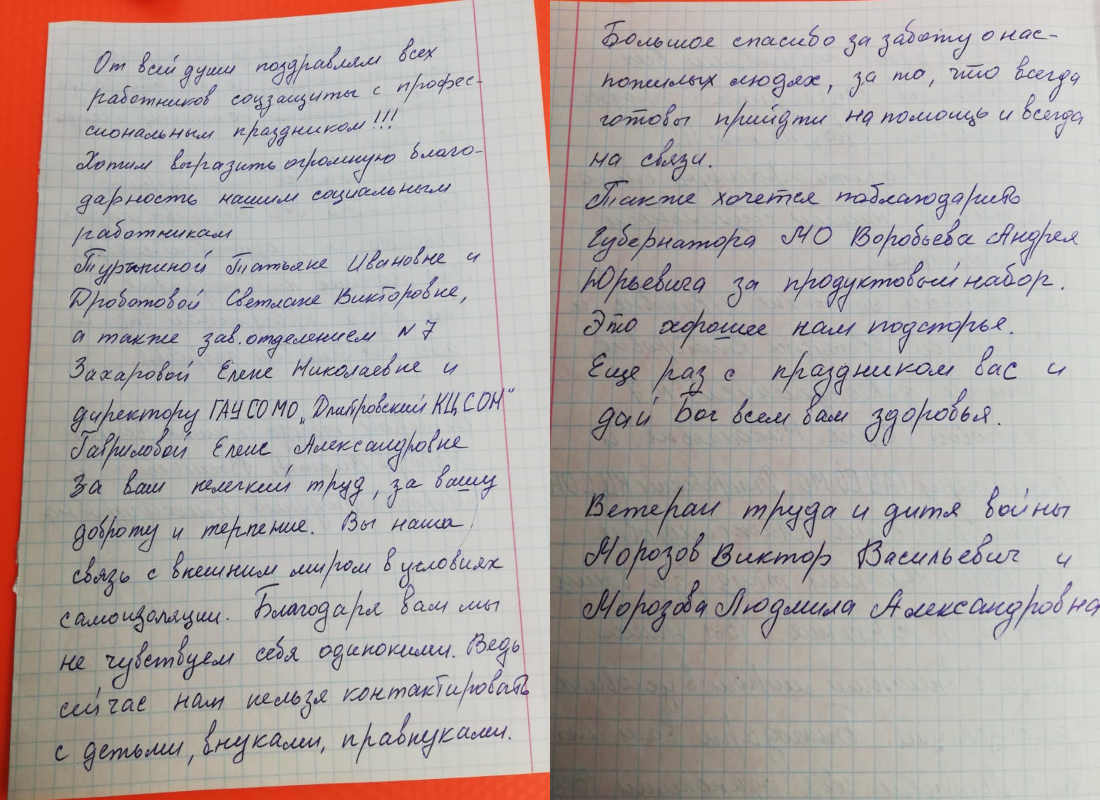 От всей души поздравлям всех
работников соцзащиты с профес-
сиональным праздником!!!
Хотим выразить огромную благо-
дарность нашим социальным
работникам
Турыниной Татьяне Ивановне и
Дроботовой Светлане Викторовне,
а также зав. отделением N 7
Захаровой Елене Николаевне и
директору ГАУСОМО „Дмитровский КЦСОН"
Гавриловой Елене Александровне
За ваш нелегкий труд, за вашу
доброту и терпение. Вы наша
связь с внешним миром в условиях
самоизоляции. Благодаря вам мы
не чувствуем себя одинокими. Ведь
сейчас нам нельзя контактировать
с детьми, внуками, правнуками.
Большое спасибо за заботу о нас-
пожилых людях, за то, что всегда
готовы прийдти на помощь и всегда
на связи.
Также хочется поблагодарить
Губернатора МО Воробьева Андрея
Юрьевича за продуктовый набор.
Это хорошее нам подспорье.
Еще раз с праздником вас и
дай Бог всем вам здоровья.
Ветеран труда и дитя войны
Морозов Виктор Васильевич и
Морозова Людмила Александровна